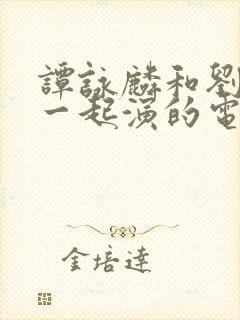 譚詠麟和劉
一起演的電
金培達